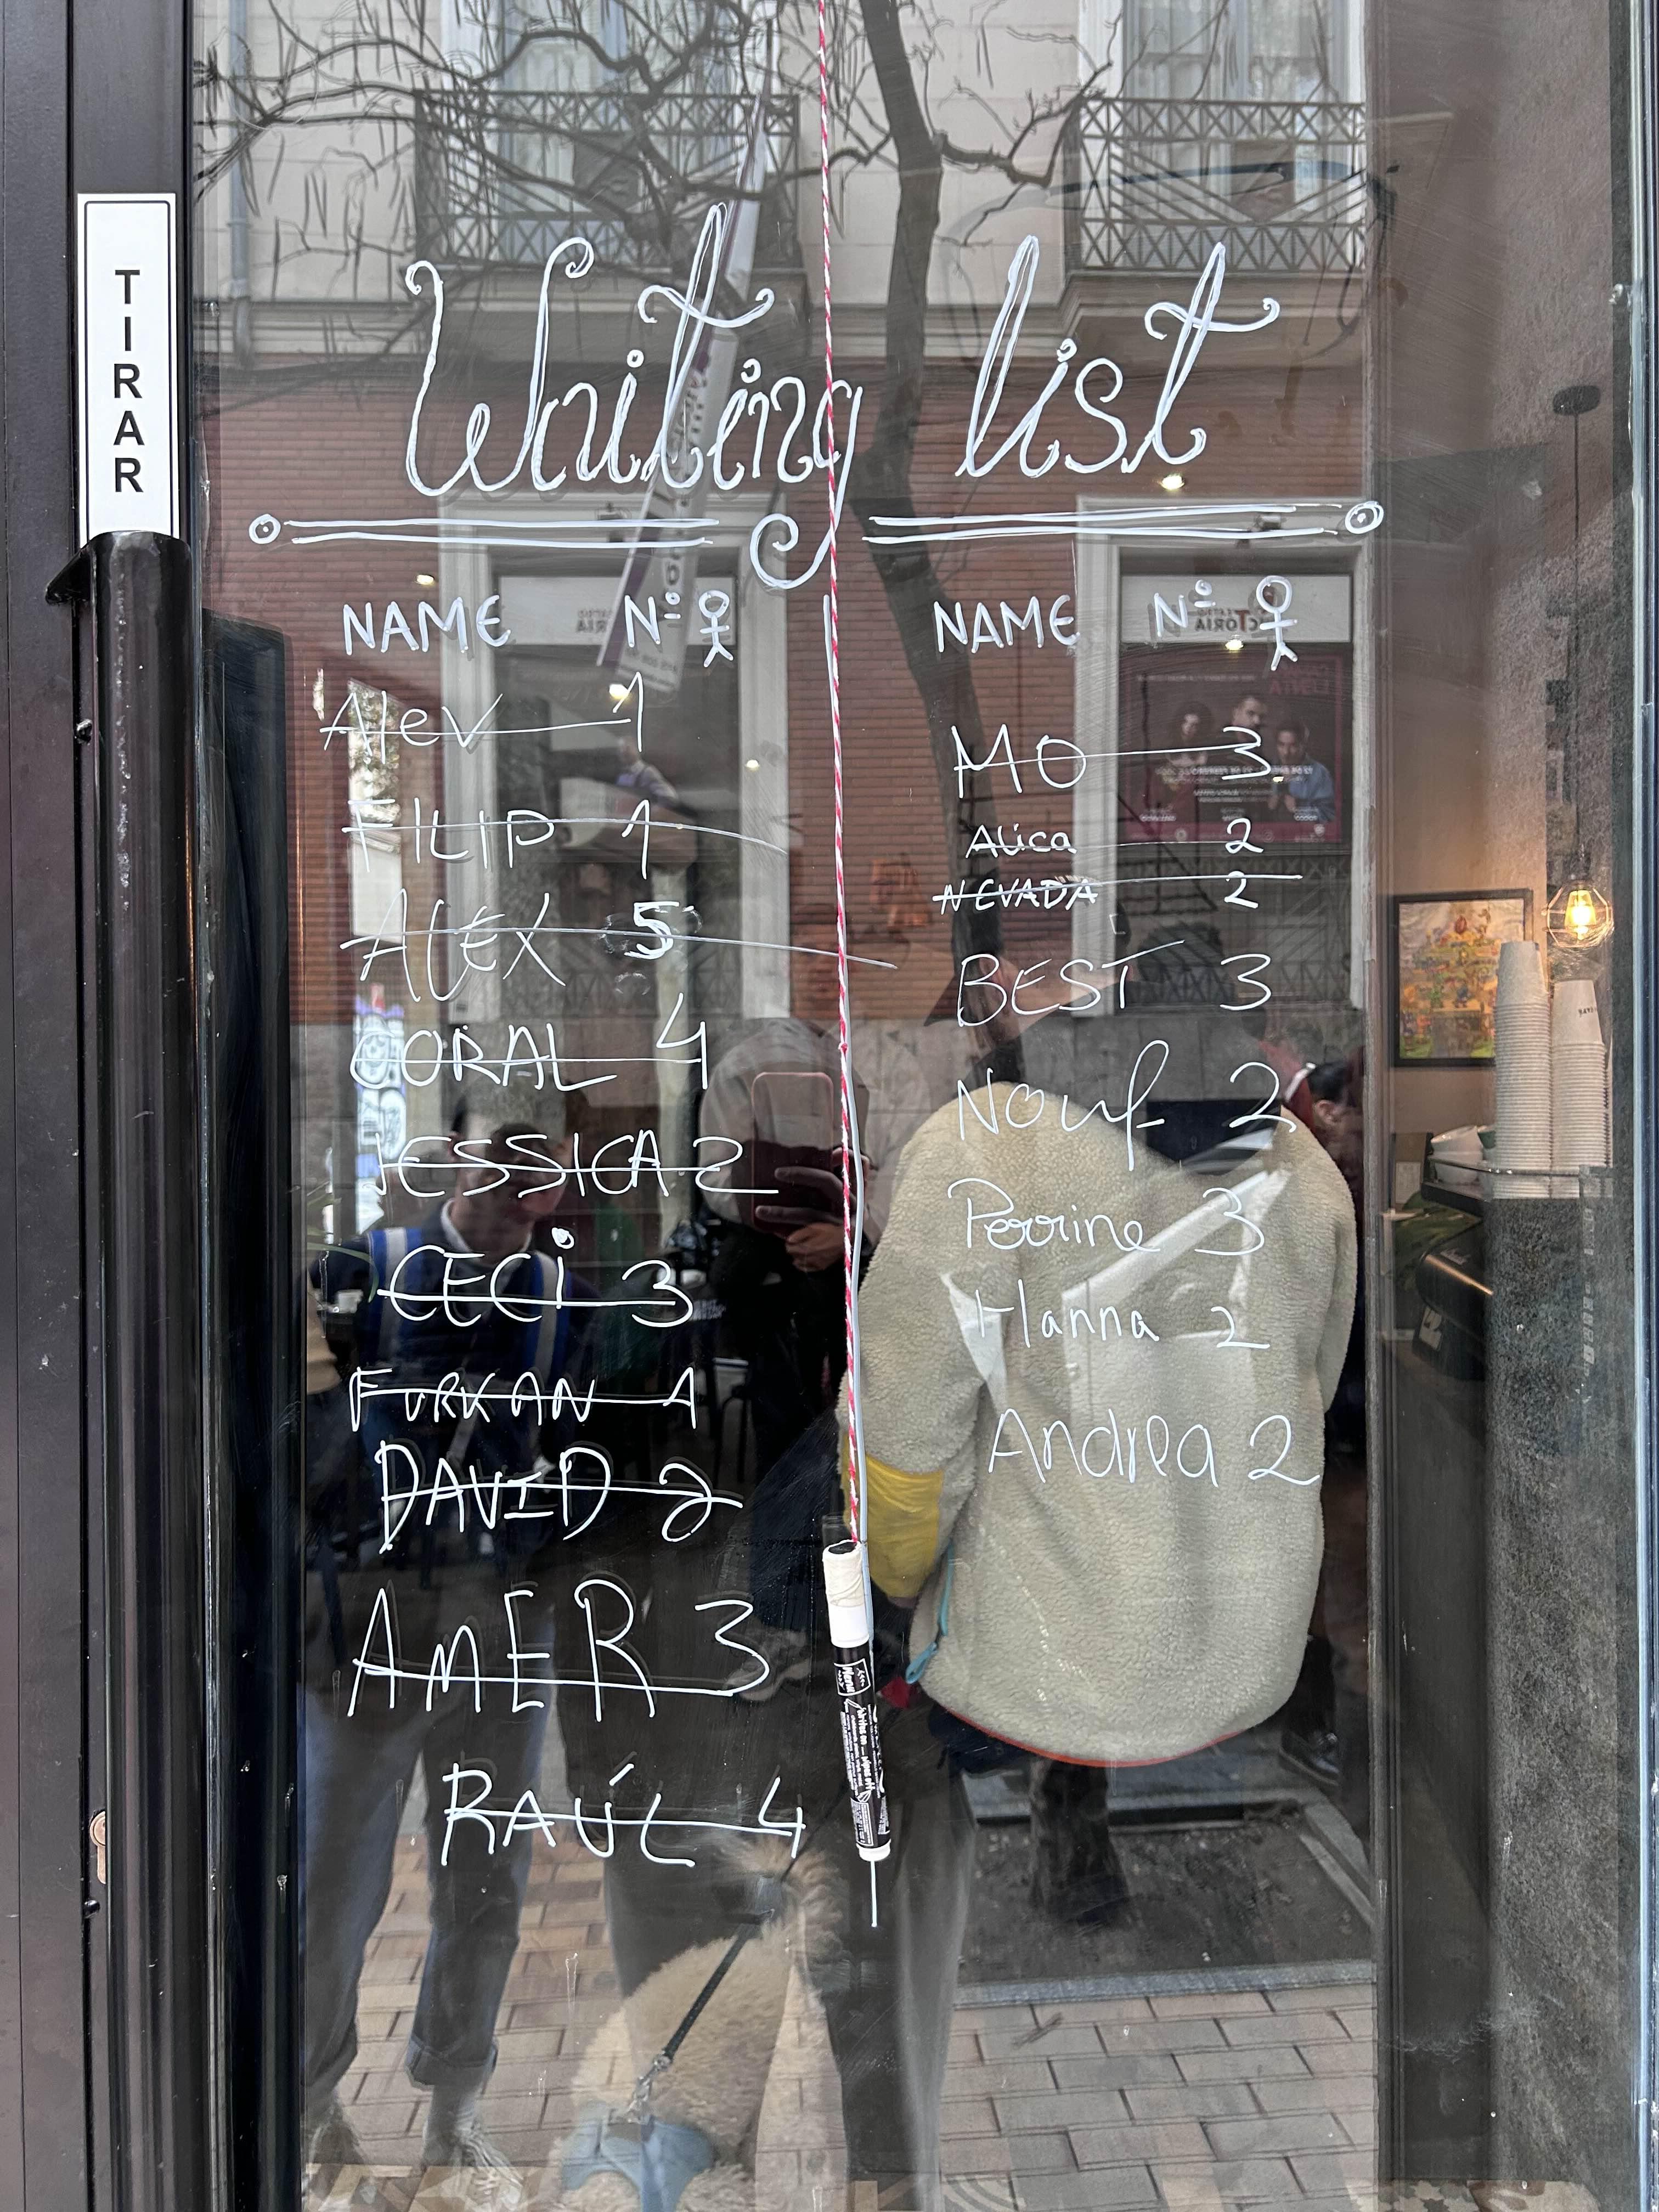 TIRAR
Waiting list
NAME Nº
Alev 1
FILIP 1
ALEX 5
CORAL 4
JESSICA 2
CECI 3
FURKAN 1
DAVID 2
AMER 3
RAÚL 4
NAME Nº
MO 3
Alica 2
NEVADA 2
BEST 3
Nouf 2
Perrine 3
Hanna 2
Andrea 2